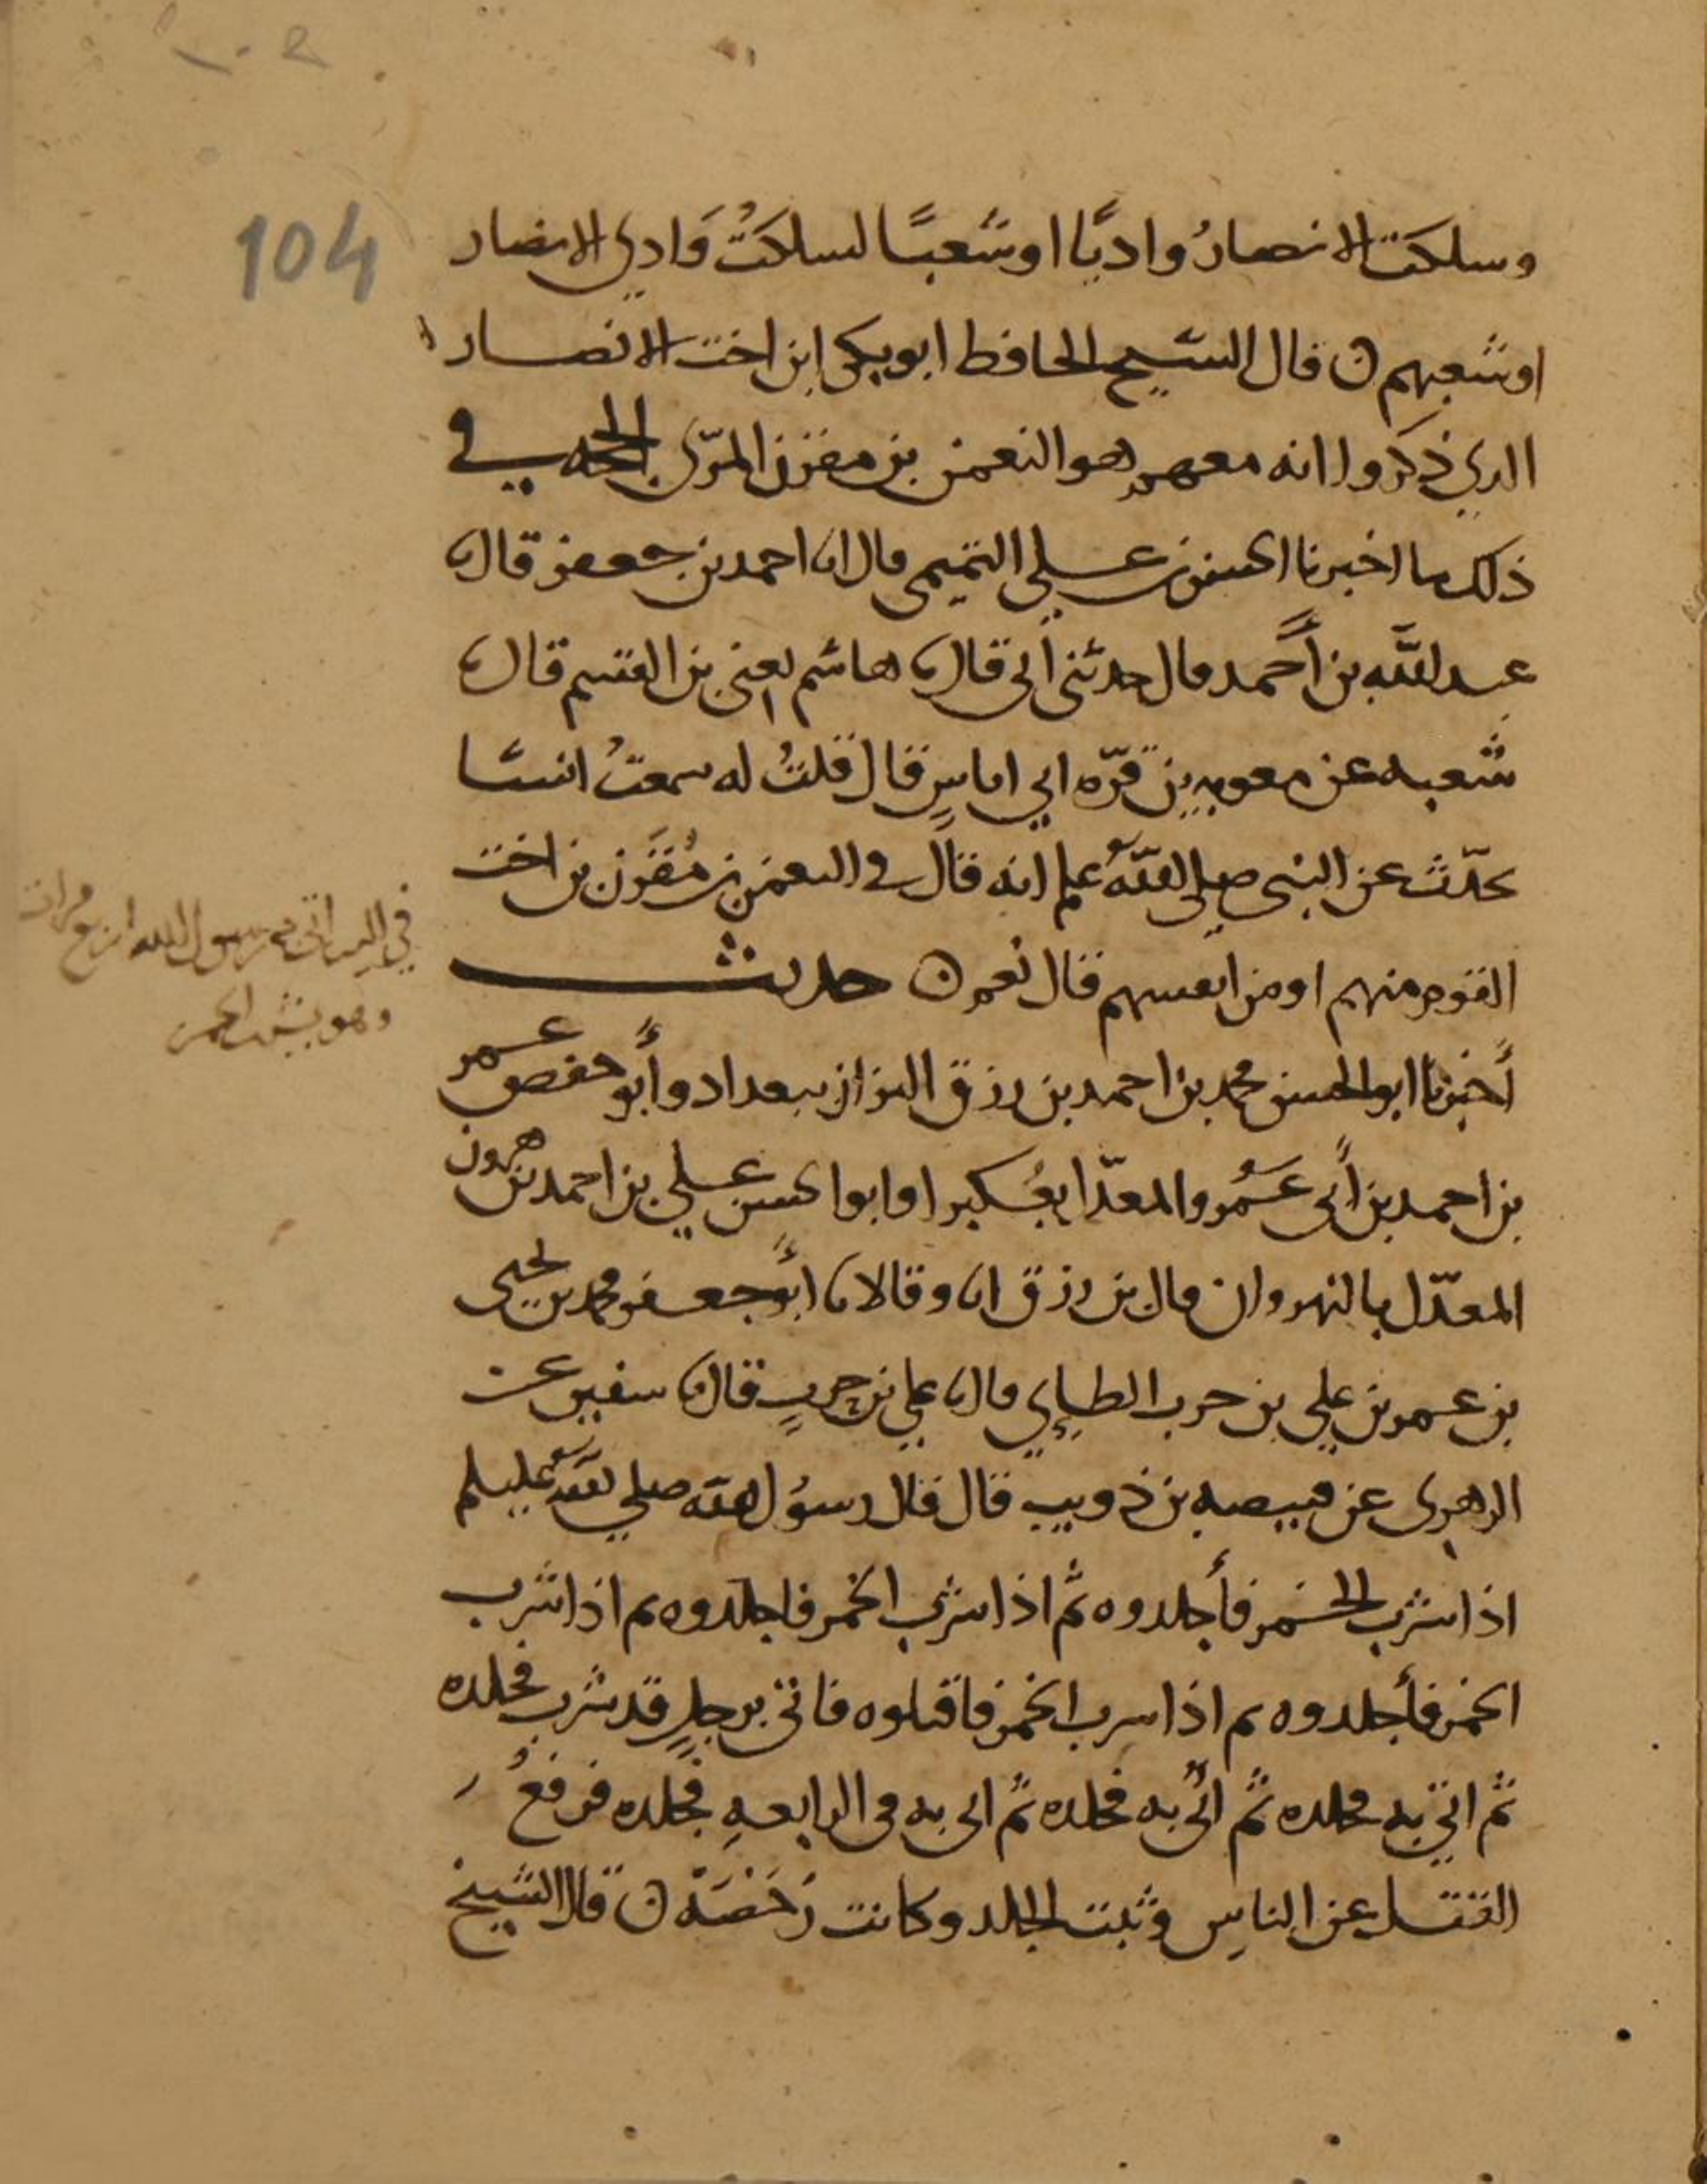 104
وسلكت الانصارُ واديًا اوشعبًا لسلكتُ وَادي الانصار
اوشعبهم ن قال الشيخ الحافظ ابو بكر ابن اخت الانصار
الذي ذكروا انه معهم هو النعمن بن مقرن المزني الحجه في
ذلك ما اخبرنا الحسن بن علي التميمي قال انا احمد بن جعفر قال نا
عبد الله بن أحمد قال حدثني أبي قال نا هاشم يعني بن القسم قال نا
شعبه عن معويه بن قرّه ابي اياسٍ قال قلتُ له سمعتَ انسًا
يحدّث عن النبي صلى اللهُ علم انه قال في النعمن بن مُقَرن بن اخت
القوم منهم اومن انفسهم قال نعم ن حديث
أخبرنا ابو الحسن محمد بن احمد بن رزق البزاز ببغداد وأبو حفص عمر
بن احمد بن أبي عَمْرو المعدّل بعُكبرا وابو الحسن علي بن احمد بن هرون
المعدّل بالنهروان قال بن رزق انا وقالا نا أبو جعفر محمد بن يحيى
بن عمر بن علي بن حرب الطايي قال نا علي بن حربٍ قال نا سفين عن
الزهري عن قبيصه بن ذويب قال قال رسُول الله صلى الله عليلم
اذا شرب الخمر فأجلدوه ثم اذا شرب الخمر فاجلدوه ثم اذا شرب
الخمر فأجلدوه ثم اذا سرب الخمر فاقتلوه فاتي برجلٍ قد شرب فجلده
ثم اتي به فجلده ثم أتي به فجلده ثم اتي به في الرابعهِ فجلده فرفعُ
القتل عن الناسِ وثبت الجلد وكانت رُخصَةً ن قال الشيخ
في اليـ اتى رسول الله اربع مرات
وهو يشرب الخمر